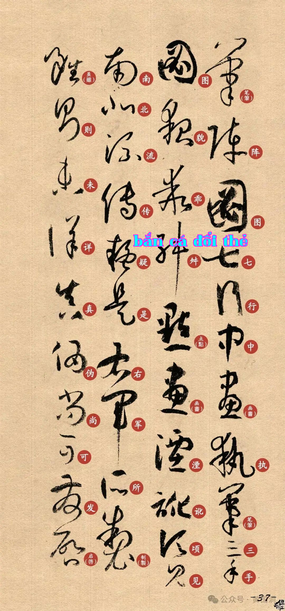 笔阵图七行中画执笔三手
图貌乖舛点画湮讹顷见
南北流传疑是右军所制
虽则未详真伪尚可发启
bắn cá đổi thẻ
-37-
公众号